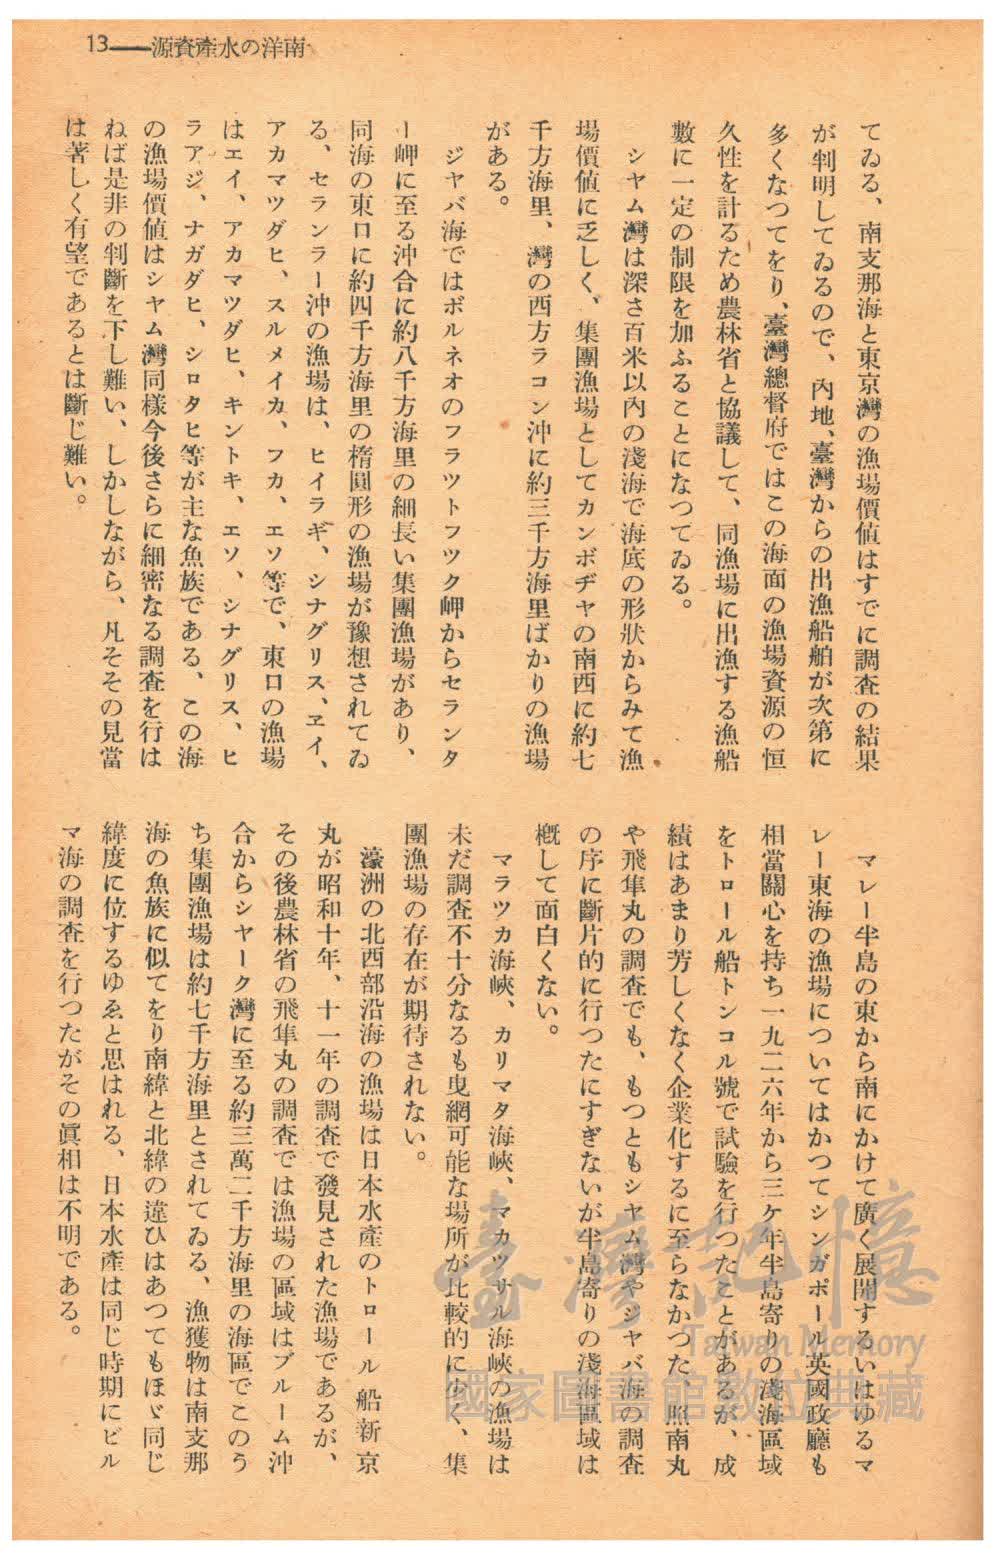 13——源資產水の洋南
てゐる、南支那海と東京灣の漁場價値はすでに調査の結果
が判明してゐるので、內地、臺灣からの出漁船舶が次第に
多くなつてをり、臺灣總督府ではこの海面の漁場資源の恒
久性を計るため農林省と協議して、同漁場に出漁する漁船
數に一定の制限を加ふることになつてゐる。
シヤム灣は深さ百米以內の淺海で海底の形狀からみて漁
場價値に乏しく、集團漁場としてカンボヂヤの南西に約七
千方海里、灣の西方ラコン沖に約三千方海里ばかりの漁場
がある。
ジヤバ海ではボルネオのフラツトフツク岬からセランタ
ー岬に至る沖合に約八千方海里の細長い集團漁場があり、
同海の東口に約四千方海里の楕圓形の漁場が豫想されてゐ
る、セランラー沖の漁場は、ヒイラギ、シナグリス、ヱイ、
アカマツダヒ、スルメイカ、フカ、エソ等で、東口の漁場
はエイ、アカマツダヒ、キントキ、エソ、シナグリス、ヒ
ラアジ、ナガダヒ、シロタヒ等が主な魚族である、この海
の漁場價値はシヤム灣同樣今後さらに細密なる調査を行は
ねば是非の判斷を下し難い、しかしながら、凡そその見當
は著しく有望であるとは斷じ難い。
マレー半島の東から南にかけて廣く展開するいはゆるマ
レー東海の漁場についてはかつてシンガポール英國政廳も
相當關心を持ち一九二六年から三ケ年半島寄りの淺海區域
をトロール船トンコル號で試驗を行つたことがあるが、成
績はあまり芳しくなく企業化するに至らなかつた、照南丸
や飛隼丸の調査でも、もつともシヤム灣やジヤバ海の調査
の序に斷片的に行つたにすぎないが半島寄りの淺海區域は
槪して面白くない。
マラツカ海峽、カリマタ海峽、マカツサル海峽の漁場は
未だ調査不十分なるも曳網可能な場所が比較的に少く、集
團漁場の存在が期待されない。
濠洲の北西部沿海の漁場は日本水產のトロール船新京
丸が昭和十年、十一年の調査で發見された漁場であるが、
その後農林省の飛隼丸の調査では漁場の區域はブルーム沖
合からシヤーク灣に至る約三萬二千方海里の海區でこのう
ち集團漁場は約七千方海里とされてゐる、漁獲物は南支那
海の魚族に似てをり南緯と北緯の違ひはあつてもほゞ同じ
緯度に位するゆゑと思はれる、日本水產は同じ時期にビル
マ海の調査を行つたがその眞相は不明である。
臺灣記憶
Taiwan Memory
國家圖書館數位典藏